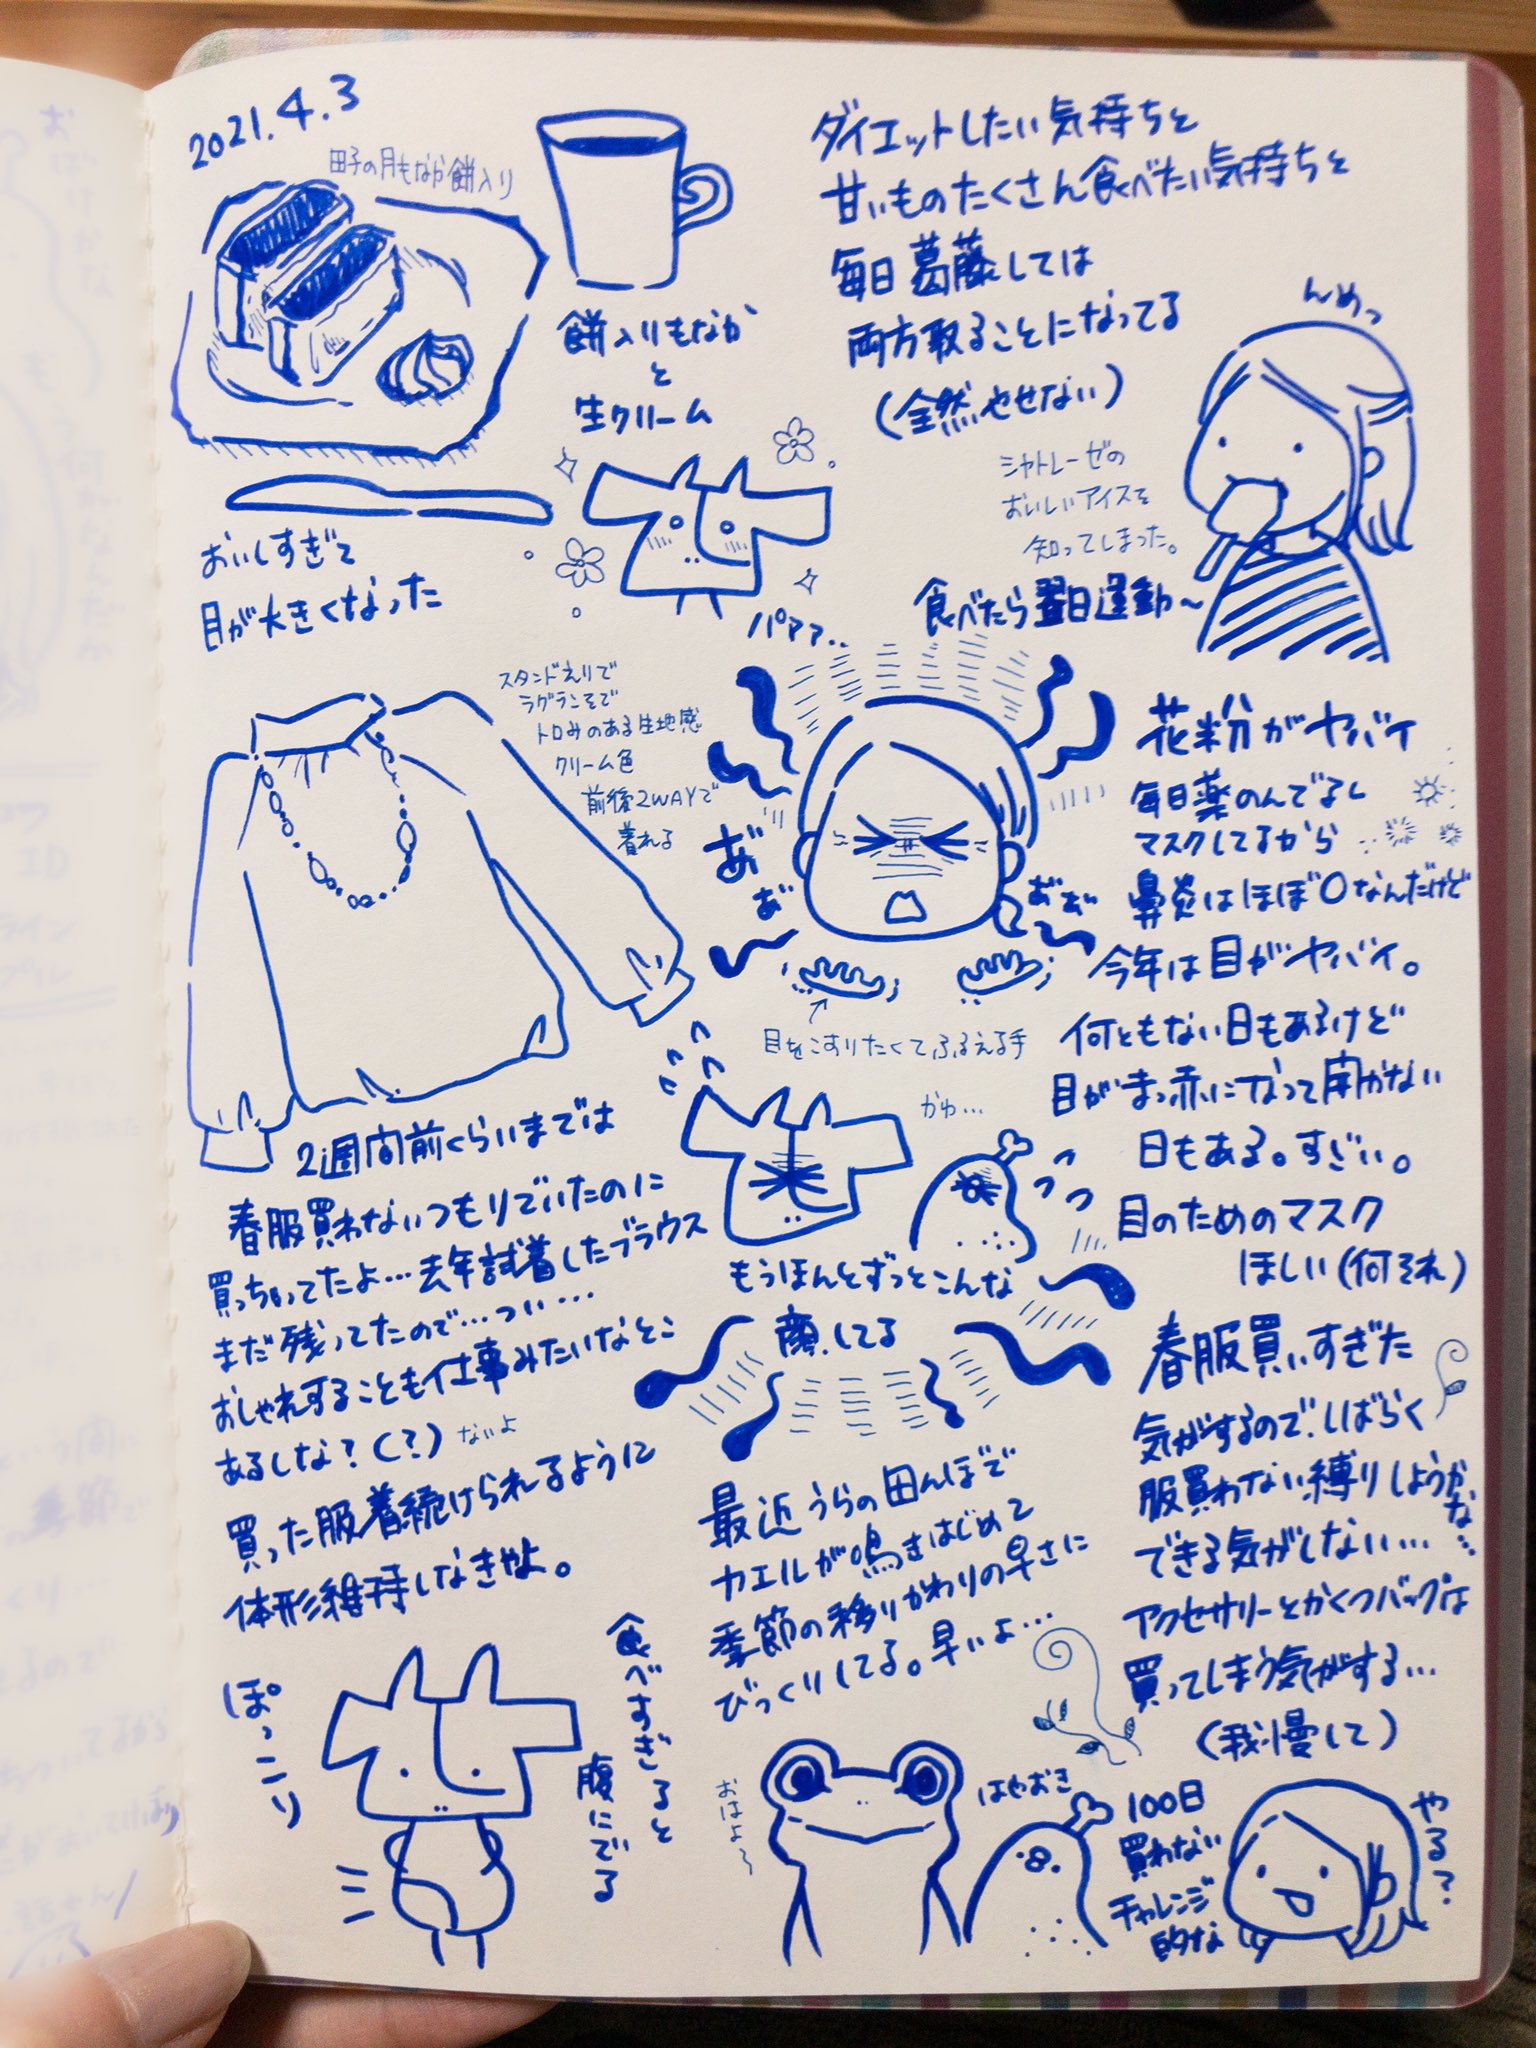 2021.4.3
田子の月もなか餅入り
餅入りもなか
と
生クリーム
おいしすぎて
目が大きくなった
パアァ..
ダイエットしたい気持ちと
甘いものたくさん食べたい気持ちと
毎日葛藤しては
両方取ることになってる
(全然やせない)
んめっ
シャトレーゼの
おいしいアイスを
知ってしまった。
食べたら翌日運動〜
スタンドえりで
ラグランそで
トロみのある生地感
クリーム色
前後2WAYで
着れる
2週間前くらいまでは
春服買わないつもりでいたのに
買っちゃってたよ…去年試着したブラウス
まだ残ってたので…つい…
おしゃれすることも仕事みたいなとこ
あるしな?(?)ないよ
買った服着続けられるように
体形維持しなきゃよ。
花粉がヤバイ
毎日薬のんでるし
マスクしてるから
鼻炎はほぼ0なんだけど
今年は目がヤバイ。
何ともない日もあるけど
目がまっ赤になって開かない
日もある。すごい。
目のためのマスク
ほしい(何それ)
目をこすりたくてふるえる手
かゆ…
もうほんとずっとこんな
顔してる
春服買いすぎた
気がするので、しばらく
服買わない縛りしようかな…
できる気がしない…
アクセサリーとかくつバッグは
買ってしまう気がする…
(我慢して)
100日
買わない
チャレンジ
的な
やる?
最近うらの田んぼで
カエルが鳴きはじめて
季節の移りかわりの早さに
びっくりしてる。早いよ…
おはよ〜
はやおき
食べすぎると
腹にでる
ぽっこり